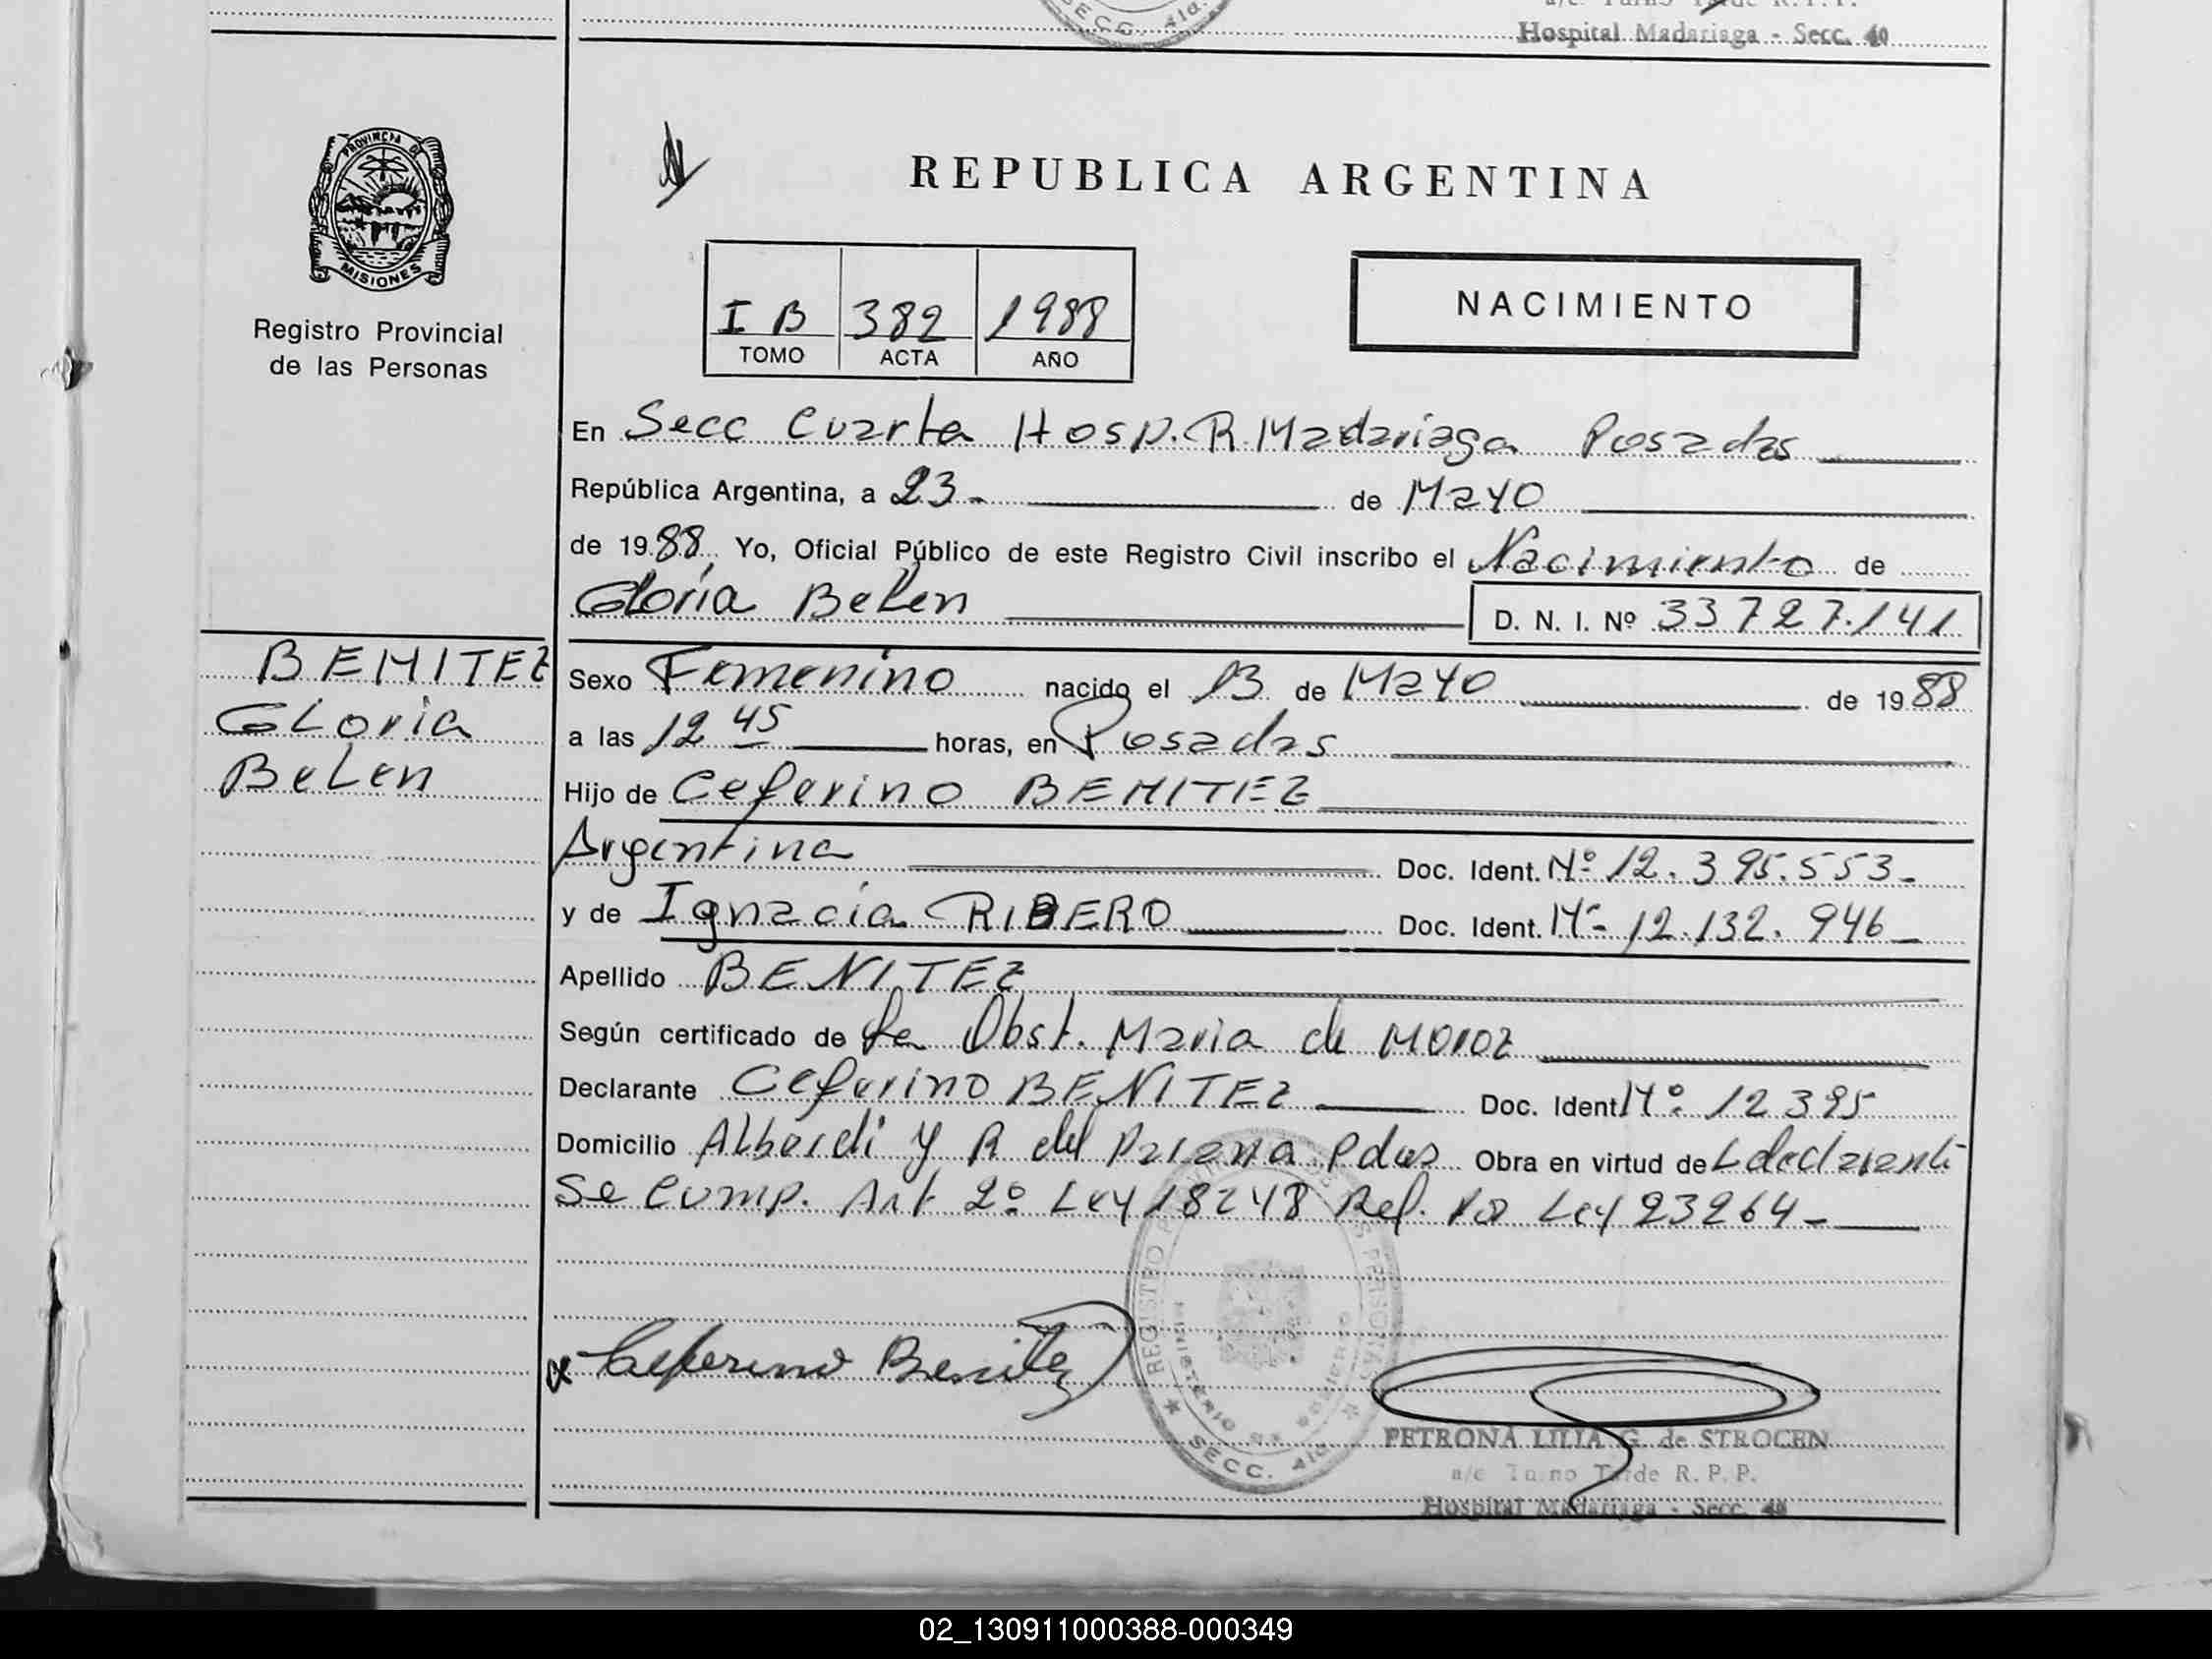 Hospital Madariaga - Secc. 40
SECC. 4ta.
PROVINCIA DE
MISIONES
Registro Provincial
de las Personas
REPUBLICA ARGENTINA
I B 382 1988
TOMO ACTA AÑO
NACIMIENTO
En Secc Cuarta Hosp. R. Madariaga Posadas
República Argentina, a 23- de Mayo
de 1988, Yo, Oficial Público de este Registro Civil inscribo el Nacimiento de
Gloria Belen D. N. I. Nº 33727.141
BENITEZ
Gloria
Belen
Sexo Femenino nacido el 13 de Mayo de 1988
a las 12 45 horas, en Posadas
Hijo de Ceferino BENITEZ
Argentina Doc. Ident. Nº 12.395.553-
y de Ignacia RIBERO Doc. Ident. Nº 12.132.946-
Apellido BENITEZ
Según certificado de La Obst. Maria de Moroz
Declarante Ceferino BENITEZ Doc. Ident Nº 12395
Domicilio Alberdi y R del Parana Pdas Obra en virtud de
Se Cump. Art 2º Ley 18248 Ref. Por Ley 23264-
x Ceferino Benitez
REGISTRO PERSONAS
MINISTERIO DE GOBIERNO
SECC. 4ta
PETRONA LILIA G. de STROCEN
a/c Turno Tarde R. P. P.
Hospital Madariaga - Secc. 40
02_130911000388-000349